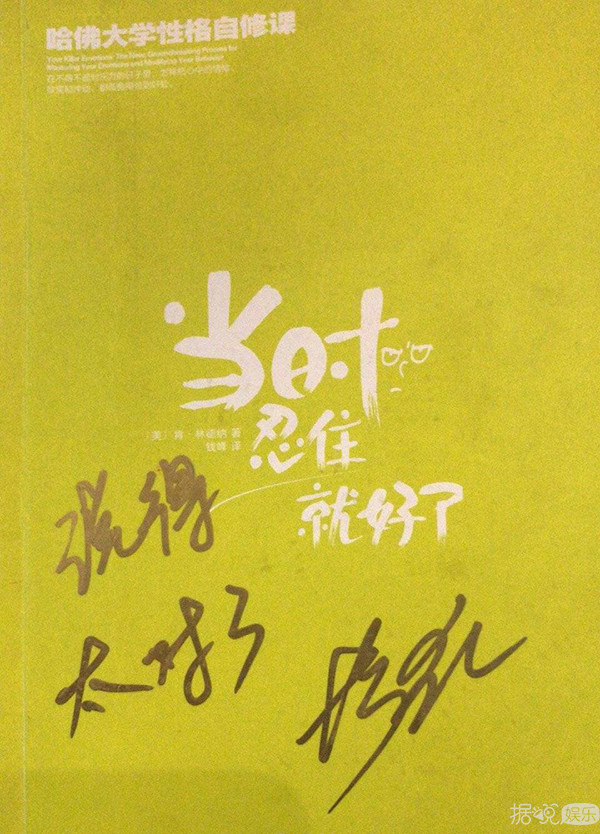 哈佛大学性格自修课
Your Killer Emotions: The
Mastering Your Emotions and Modifying Your Behavior
当时
忍住
就好了
〔美〕肯·林德纳 著
钱峰 译
说得
太对了
据说娱乐